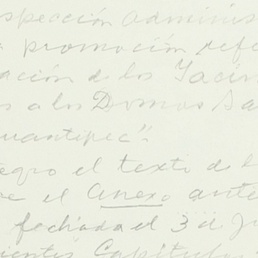 spección adminis
promoción refe
ación de los Yacim
s a los Domos Sa
uantepec".
egro el texto de l
re el Anexo ante
fechada el 3 d Ju
ientes Capítulos